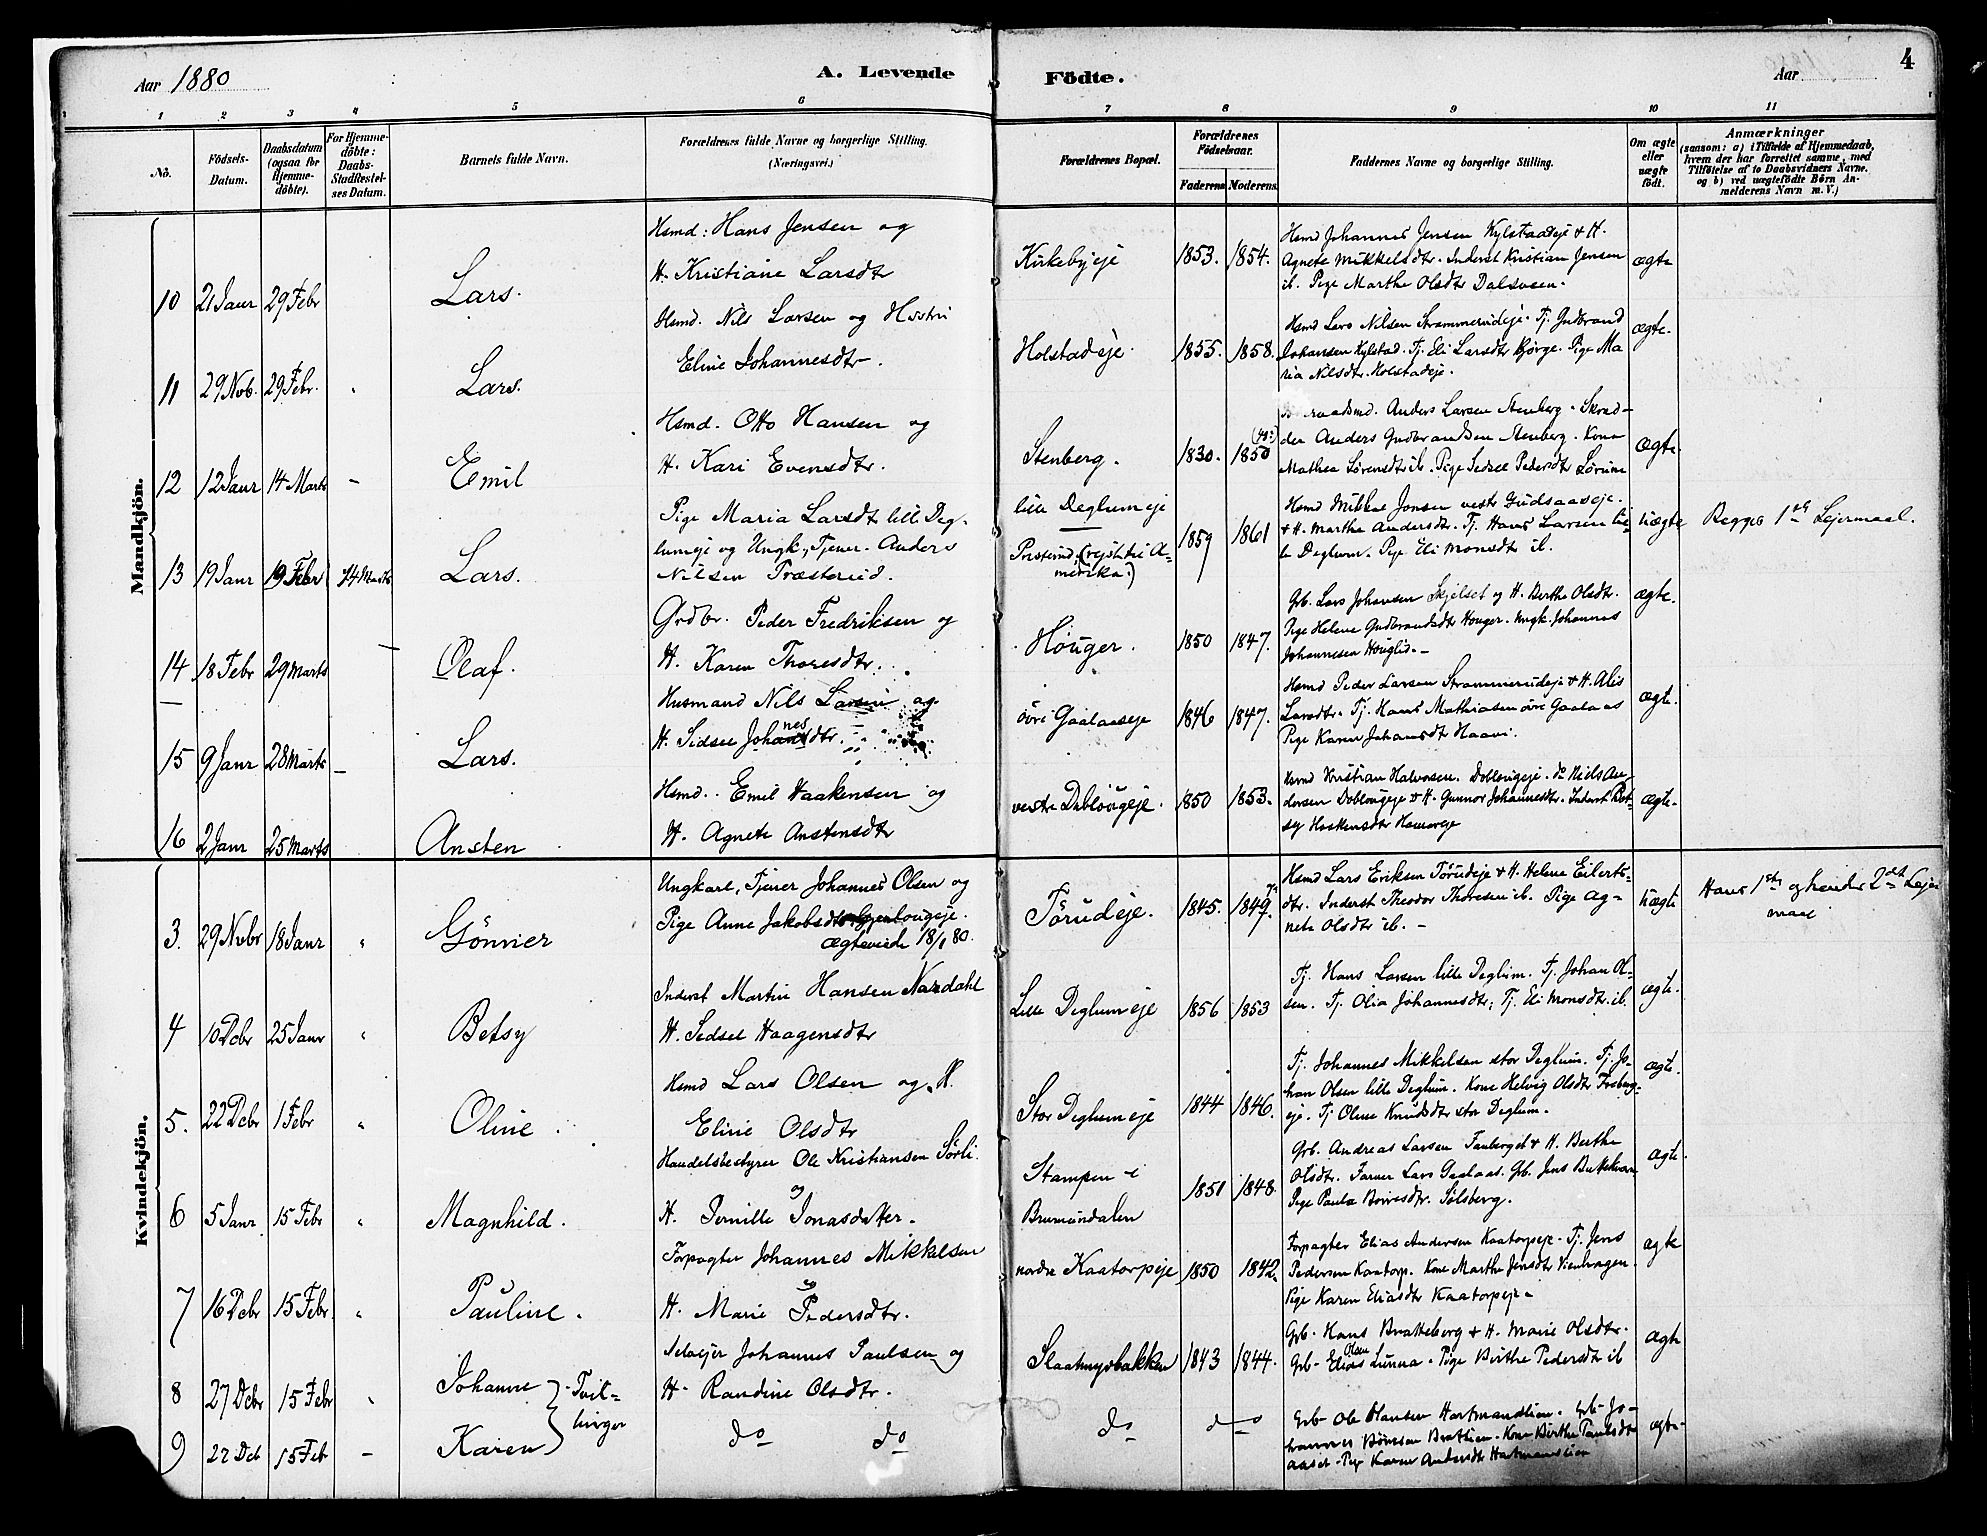 Aar 1880
A. Levende Födte.
Aar
4
1 2 3 4 5 6 7 8 9 10 11
No.
Födsels-Datum.
Daabsdatum (ogsaa for Hjemme-döbte).
For Hjemme-döbte: Daabs-Stadfæstel-ses Datum.
Barnets fulde Navn.
Forældrenes fulde Navne og borgerlige Stilling. (Næringsvei.)
Forældrenes Bopæl.
Forældrenes Födselsaar.
Faderens. Moderens.
Faddernes Navne og borgerlige Stilling.
Om ægte eller uægte födt.
Anmærkninger
(saasom: a) i Tilfælde af Hjemmedaab,
hvem der har forrettet samme, med
Tilföielse af to Daabsvidners Navne.
og b) ved uægtefödte Börn An-
melderens Navn m. V.)
Mandkjön.
10 21 Janr 29 Febr Lars.
Hsmd: Hans Jensen og
H. Kristiane Larsdtr
Kirkebyeje 1853. 1854.
Hsmd Johannes Jensen Kylstadeje & H.
Agnete Mikkelsdtr. Inderst Kristian Jensen
ib. Pige Marthe Olsdtr Dalsveen.
ægte
11 29 Nvb. 29 Febr. " Lars.
Hsmd. Nils Larsen og Hustri
Eline Johannesdtr.
Holstadeje 1855. 1858.
Hsmd Lars Nilsen Strammerudeje. Tj. Gudbrand
Johansen Kylstad. Tj. Eli Larsdtr Bjørge. Pige Ma
ria Nilsdtr. Holstadeje.
ægte.
12 12 Janr 14 Marts - Emil
Hsmd. Otto Hansen og
H. Kari Evensdtr.
Stenberg. 1830. 1850
Anders Larsen Stenberg. Skræd-
der Anders Gudbrandsen Stenberg. Kone
Mathea Lørensdtr ib. Pige Sedsel Pedersdtr
ægte.
13 19 Janr 19 Febr 14 Marts Lars.
Pige Maria Larsdt lill Deg-
lumeje og Ungk., Tjener. Anders
Nilsen Præsterud.
lille Deglumeje
(rejst til A-
merika.)
1859 1861
Hsmd Mikkel Jonsen vestr Gudsaaseje.
& H. Marthe Andersdtr. Tj. Hans Larsen lil-
le Deglum. Pige Eli Monsdtr ib.
uægte Begges 1ste Lejermaal.
14 18 Febr 29 Marts - Olaf.
Grdbr. Peder Fredriksen og
H. Karen Thoresdtr.
Houger. 1850 1847.
Grb. Lars Johansen Skjelset og H. Berthe Olsdtr.
Pige Helene Gudbrandsdtr Houger. Ungk. Johannes
Johannesen Houglid.
ægte.
15 9 Janr 28 Marts - Lars.
Husmand Nils Larsen og
H. Sidsel Johannesdtr.
övre Gaalaaseje 1846 1847.
Hsmd Peder Larsen Strammerudeje & H. Alis
Larsdtr. Tj. Hans Mathiasen övre Gaalaas
Pige Karen Johansdtr
ægte.
16 2 Janr 25 Marts Ansten
Hsmd. Emil Haakensen og
H. Agnete Anstensdtr
vestre Doblougeje. 1850 1853.
Hsmd Kristian Halvorsen. Doblougeje. do Niels An-
dersen Doblougeje & H. Gunnor Johannesdtr. Inderst Bet-
sy
ægte.
Kvindekjön.
3. 29 Nvbr 18 Janr " Gönner
Ungkarl, Tjener Johannes Olsen og
Pige Anne Jakobsdtr
Ægteviede 18/1 80.
Törudeje. 1845. 1849.
Hsmd Lars Eriksen Törudeje & H. Helene Eilerts-
dtr. Inderst Theodor Thoresen ib. Pige Ag-
nete Olsdtr ib.
uægte Hans 1ste og hendes 2det Lejer
maal
4 10 Dcbr 25 Janr " Betsy
Inderst Martin Hansen Nordahl
H. Sedsel Haagensdtr
Lille Deglumeje 1856 1853
Tj. Hans Larsen lille Deglum. Tj. Johan Ol-
sen. Tj. Olia Johannesdtr; Tj. Eli Monsdtr ib.
ægte.
5. 22 Dcbr 1 Febr " Oline
Hsmd Lars Olsen og H.
Eline Olsdtr
Stor Deglumeje 1844 1846.
Tj. Johannes Mikkelsen stor Deglum. Tj. Jo-
han Olsen lille Deglum. Kone Helvig Olsdtr
eje. Tj Oline Knudsdtr stor Deglum.
ægte.
6 5 Janr 15 Febr " Magnhild.
Handelsbestyrer Ole Kristiansen Sørli
og
H. Pernille Jonasdatter.
Stampen i
Brumundalen
1851 1848.
Grb. Andreas Larsen & H. Berthe
Olsdtr. Farmer Lars Gaalaas. Grb. Jens
Pige Paula Sølsberg.
ægte
7 16 Dcbr 15 Febr " Pauline.
Forpagter Johannes Mikkelsen
og
H. Marie Pedersdtr.
nordre Kaatorpeje 1850 1842.
Forpagter Elias Andersen Kaatorpeje. Tj. Jens
Pedersen Kaatorp. Kone Marthe Jensdtr Vienhagen.
Pige Karen Eliasdtr Kaatorpeje.
ægte
8 27 Dcbr 15 Febr " Johanne
Tvil-
linger
Selvejer Johannes Paulsen og
H. Randine Olsdtr.
Slaatmyrbakken 1843 1844.
Grb. Hans Bratteberg & H. Marie Olsdtr.
Grb. Elias Olsen Lunna. Pige Birthe Pedersdtr ib
ægte
9 22 Dcb 15 Feb - Karen
do do
do do
Grb. Ole Hansen Hartmandlien. Grb. Jo-
hannes Kone Birthe Paulsdtr
aaset. Pige Karen Andersdtr Hartmandlien
ægte.